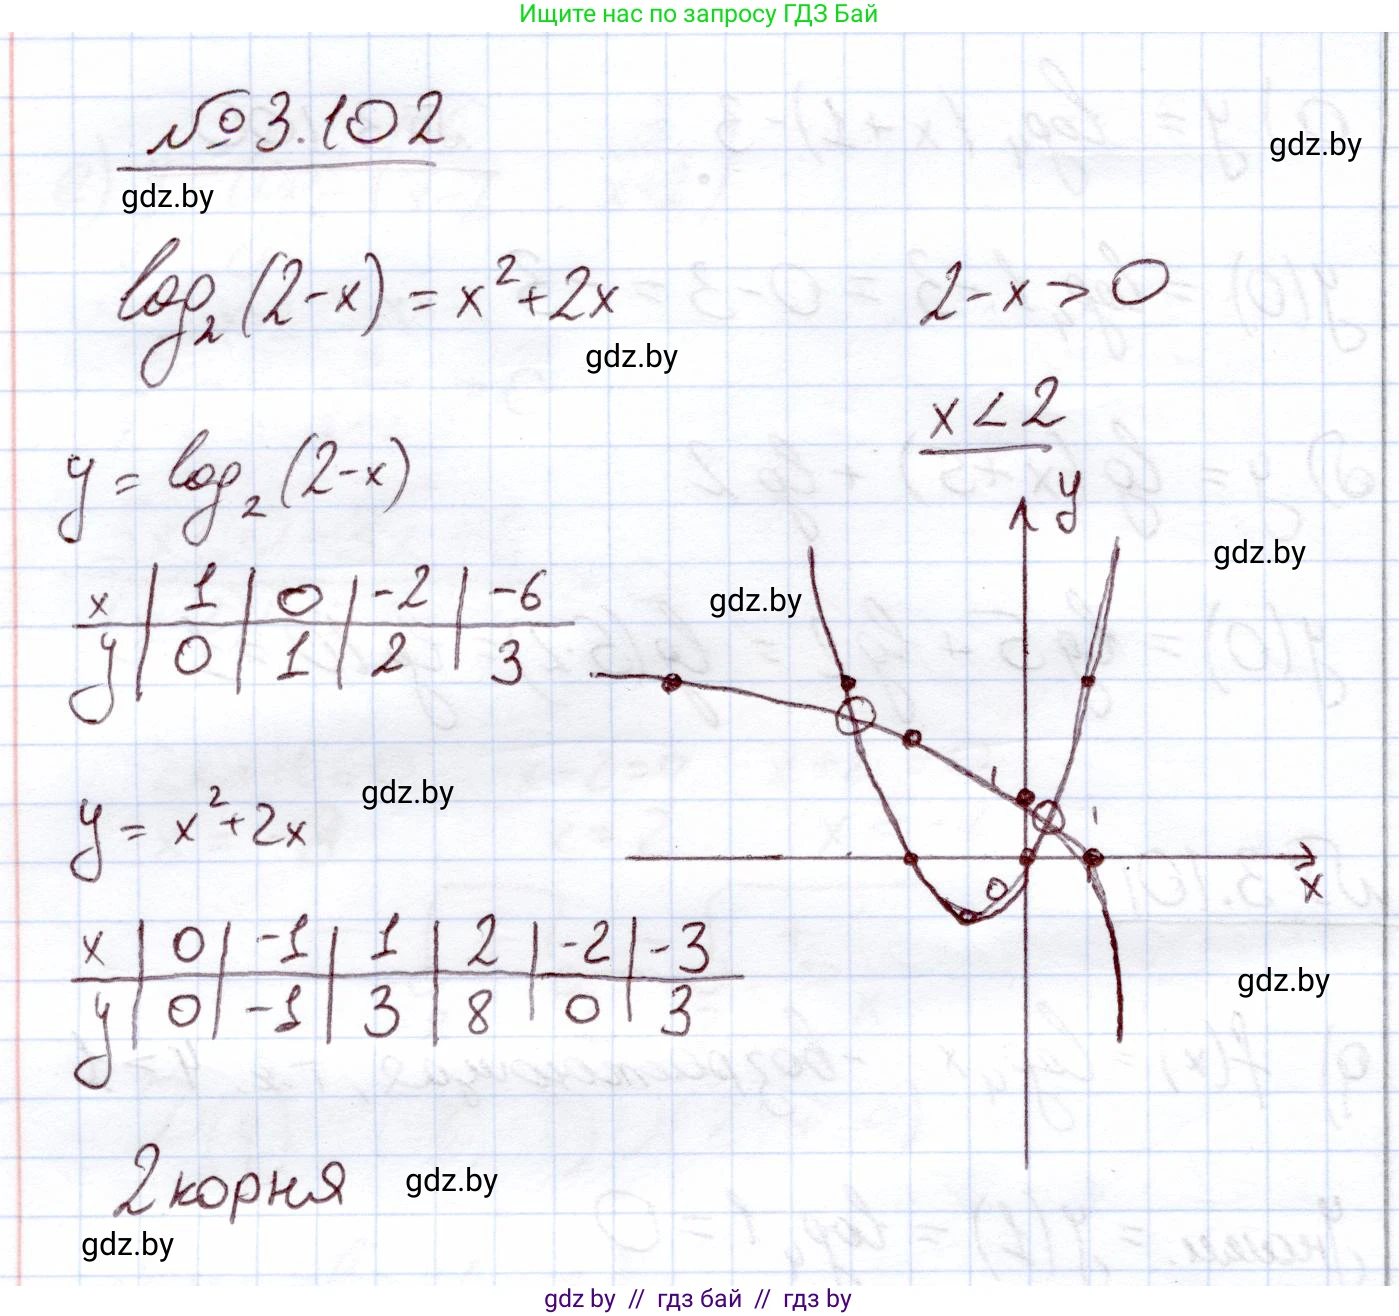 Ищите нас по запросу ГДЗ Бай
№3.102
gdz.by
gdz.by
log₂(2-x) = x²+2x
2-x > 0
gdz.by
x < 2
y = log₂(2-x)
y
gdz.by
gdz.by
x | 1 | 0 | -2 | -6
y | 0 | 1 | 2 | 3
1
1
0
x
gdz.by
y = x²+2x
x | 0 | -1 | 1 | 2 | -2 | -3
y | 0 | -1 | 3 | 8 | 0 | 3
gdz.by
2 корня
gdz.by
gdz.by
gdz by // гдз бай // гдз by